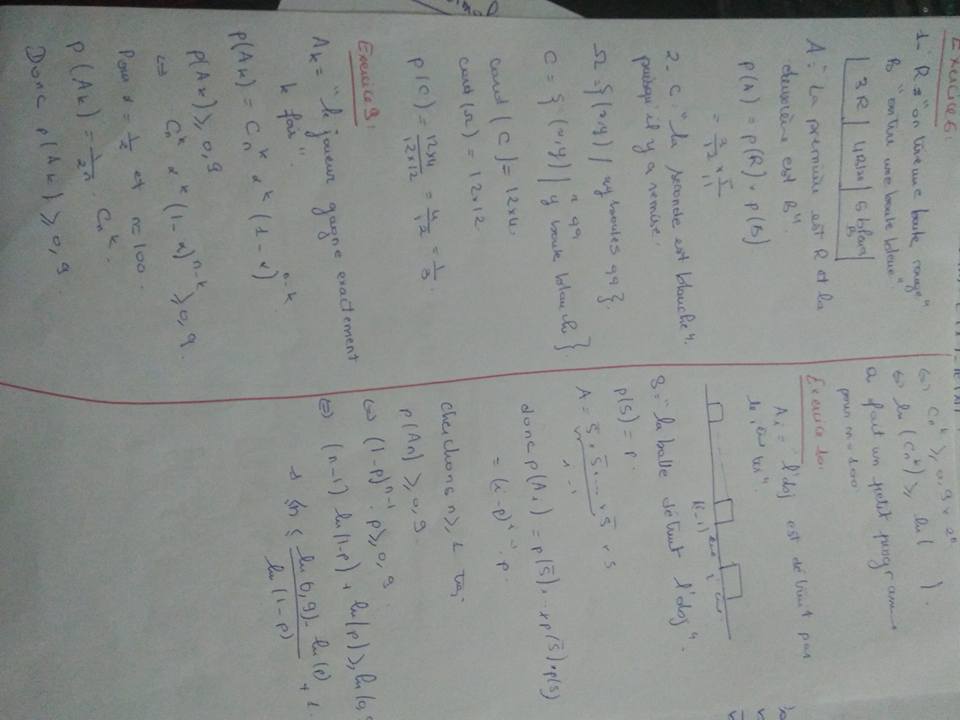 Exercice 6:
1- R = "on tire une boule rouge"
B "on tire une boule bleue"
3R | 4Blan | 5 bleues
B
A = "La première est R et la
deuxième est B"
p(A) = p(R) × p(B)
= 3/12 × 5/11
2- C: "la seconde est blanche".
puisqu'il y a remise.
Ω = { (x,y) | x,y boules qq }.
C = { (x,y) | x qq y boule blanche }.
card (C) = 12×4
card (Ω) = 12×12
p(C) = 12×4 / 12×12 = 4/12 = 1/3.
Exercice 9:
Ak = "le joueur gagne exactement
k fois"
p(Ak) = Cn^k α^k (1-α)^n-k
p(Ak) ≥ 0,9
⇔ Cn^k α^k (1-α)^n-k ≥ 0,9.
Pour α = 1/2 et n=100.
p(Ak) = 1/2^n Cn^k.
Donc p(Ak) ≥ 0,9
⇔ Cn^k ≥ 0,9 × 2^n
⇔ ln (Cn^k) ≥ ln ( ).
a fait un petit programme
pour n=100
Exercice 10:
Ai = "l'obj est détruit par
(i-1) ème i ème
S = "la balle détruit l'obj".
p(S) = p.
A = S̄ × S̄ × ... × S̄ × S
i-1
donc p(Ai) = p(S̄) × ... × p(S̄) × p(S)
= (1-p)^i-1 . p.
cherchons n ≥ 1 tq:
p(An) ≥ 0,9.
⇔ (1-p)^n-1 . p ≥ 0,9
⇔ (n-1) ln(1-p) + ln(p) ≥ ln(0,9
n ≤ ln(0,9) - ln(p) / ln(1-p) + 1.